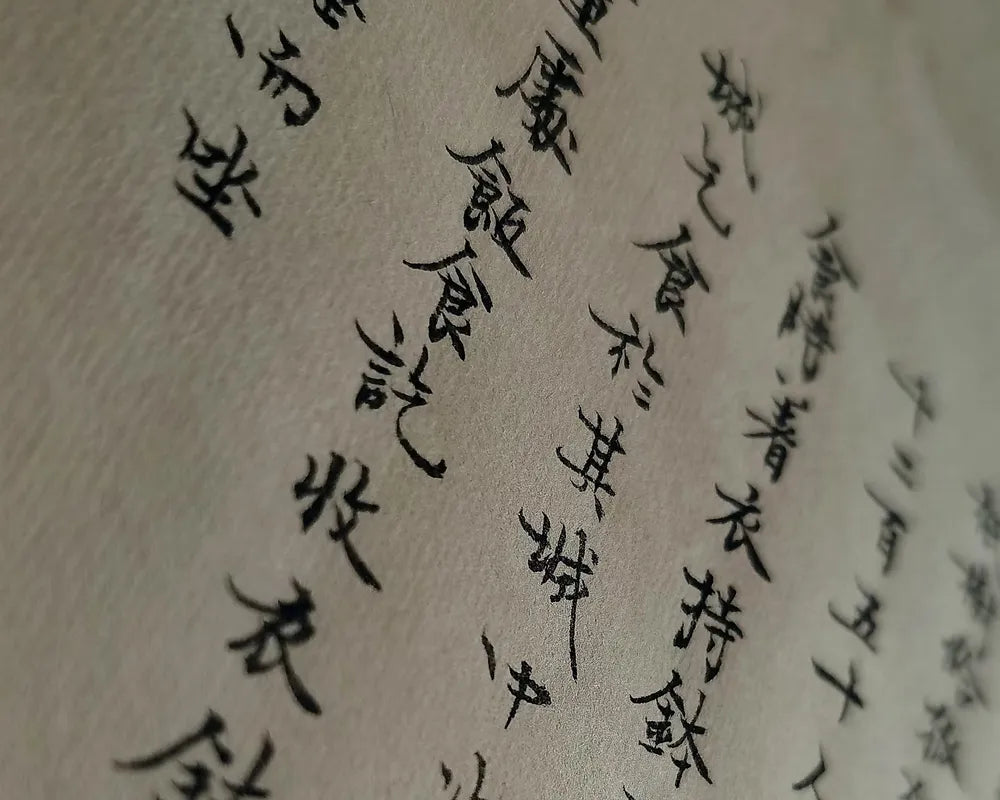 千二百五十人
食時著衣持鉢
城乞食於其城中次
處飯食訖收衣鉢
而坐